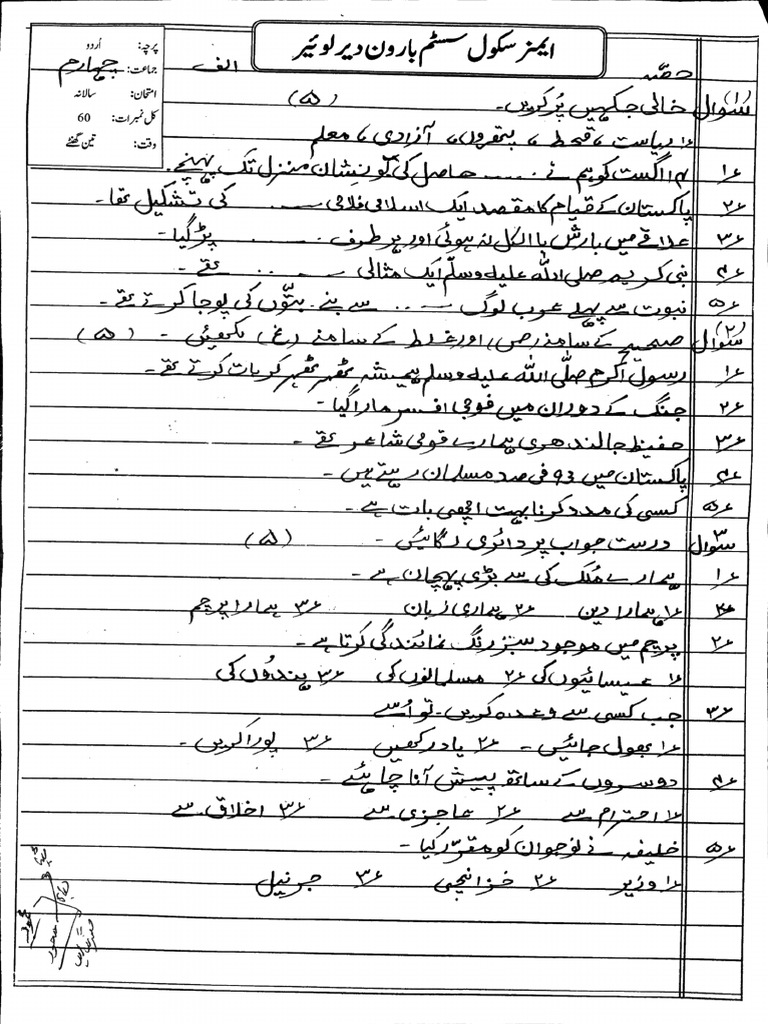 ایمز سکول سسٹم بارون دیر لوئیر
پرچہ: اُردو
جماعت: چہارم
امتحان: سالانہ
کل نمبرات: 60
وقت: تین گھنٹے
حصّہ الف
سوال ۱ خالی جگہیں پُر کریں۔ (۵)
ریاست ، قحط ، پتھروں ، آزادی ، معلم
۱۴ اگست کو ہم نے ...... حاصل کی گو نشان منزل تک پہنچے۔
۲ پاکستان کے قیام کا مقصد ایک اسلامی فلاحی ...... کی تشکیل تھا۔
۳ علاقے میں بارش بالکل نہ ہوئی اور ہر طرف ...... پڑ گیا۔
۴ نبی کریم صلی اللہ علیہ وسلم ایک مثالی ...... تھے۔
۵ نبوت سے پہلے عرب لوگ ...... سے بنے بتوں کی پوجا کرتے تھے۔
سوال (۲) صحیح کے سامنے (ص) اور غلط کے سامنے (غ) لکھیں۔ (۵)
۱ رسول اکرم صلی اللہ علیہ وسلم ہمیشہ ٹھہر ٹھہر کر بات کرتے تھے۔
۲ جنگ کے دوران میں فوجی افسر مارا گیا۔
۳ حفیظ جالندھری ہمارے قومی شاعر تھے۔
۴ پاکستان میں 93 فی صد مسلمان رہتے ہیں۔
۵ کسی کی مدد کرنا بہت اچھی بات ہے۔
سوال ۳ درست جواب پر دائری لگائیں۔ (۵)
۱ ہمارے مُلک کی سے بڑی پہچان ہے۔
۱ ہمارا دین ۲ ہماری زبان ۳ ہمارا پرچم
۲ پرچم میں موجود سبز رنگ نمائندگی کرتا ہے۔
۱ عیسائیوں کی ۲ مسلمانوں کی ۳ ہندوُں کی
۳ جب کسی سے وعدہ کریں۔ تو اُسے
۱ بھول جائیں۔ ۲ یاد رکھیں ۳ پورا کریں۔
۴ دوسروں کے ساتھ پیش آنا چاہئے۔
۱ احترام سے ۲ عاجزی سے ۳ اخلاق سے
۵ خلیفہ نے نوجوان کو مقرّر کیا۔
۱ وزیر ۲ خزانچی ۳ جرنیل